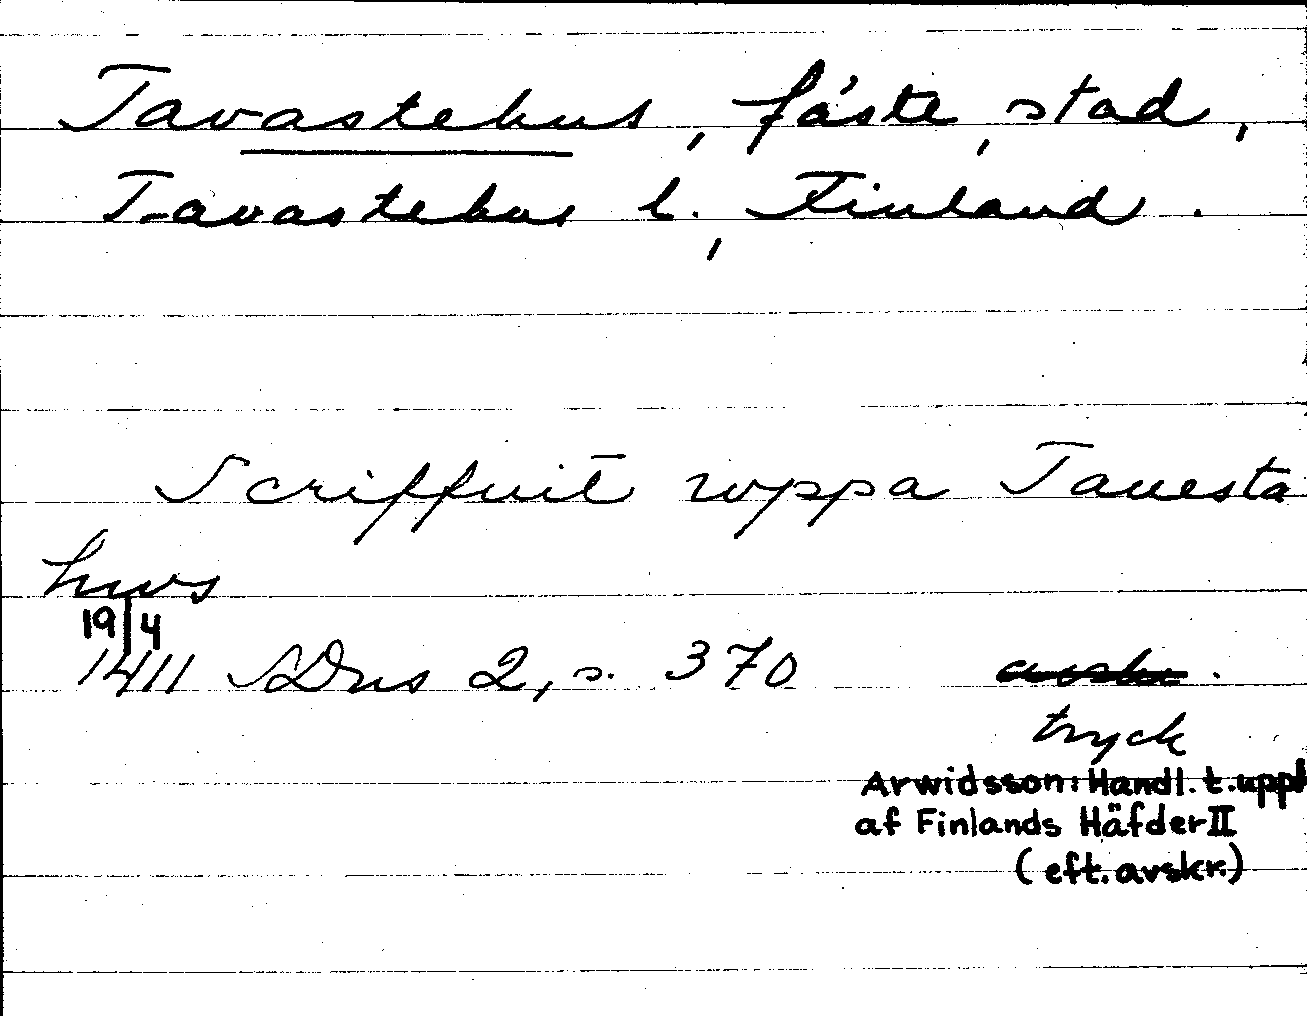 Tavastehus, fäste, stad,
Tavastehus l., Finland.
Scriffuit wppa Tauesta
hws
19/4
1411 SDns 2, s. 370 avskr.
tryck
Arwidsson: Handl. t. uppl
af Finlands Häfder II
(eft. avskr.)